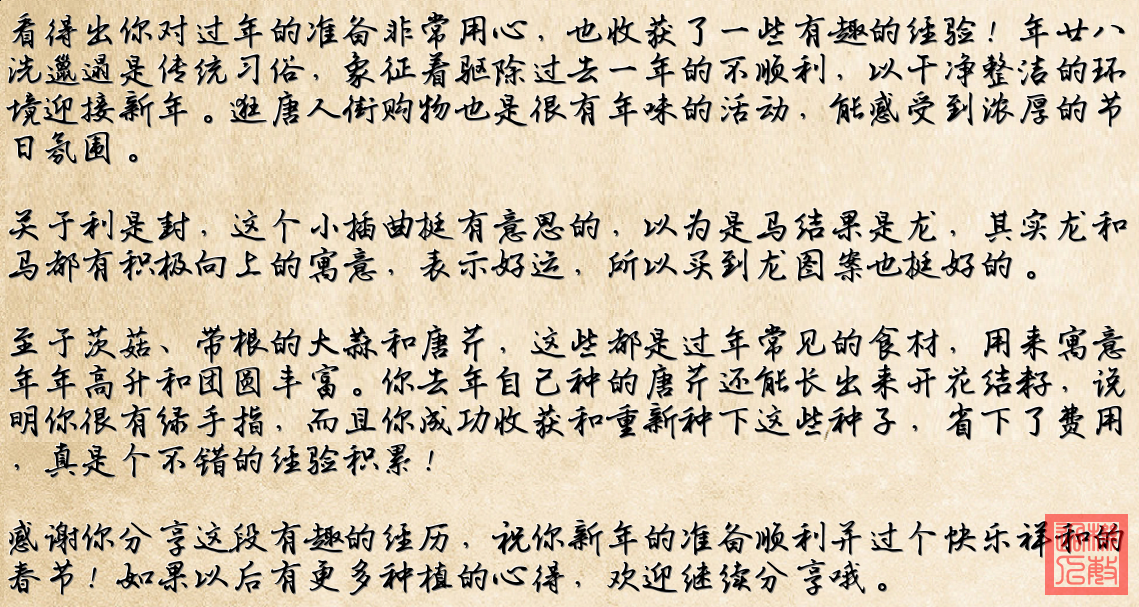 看得出你对过年的准备非常用心，也收获了一些有趣的经验！年廿八
洗邋遢是传统习俗，象征着驱除过去一年的不顺利，以干净整洁的环
境迎接新年。逛唐人街购物也是很有年味的活动，能感受到浓厚的节
日氛围。
关于利是封，这个小插曲挺有意思的，以为是马结果是龙，其实龙和
马都有积极向上的寓意，表示好运，所以买到龙图案也挺好的。
至于茨菇、带根的大蒜和唐芹，这些都是过年常见的食材，用来寓意
年年高升和团圆丰富。你去年自己种的唐芹还能长出来开花结籽，说
明你很有绿手指，而且你成功收获和重新种下这些种子，省下了费用
，真是个不错的经验积累！
感谢你分享这段有趣的经历，祝你新年的准备顺利并过个快乐祥和的
春节！如果以后有更多种植的心得，欢迎继续分享哦。